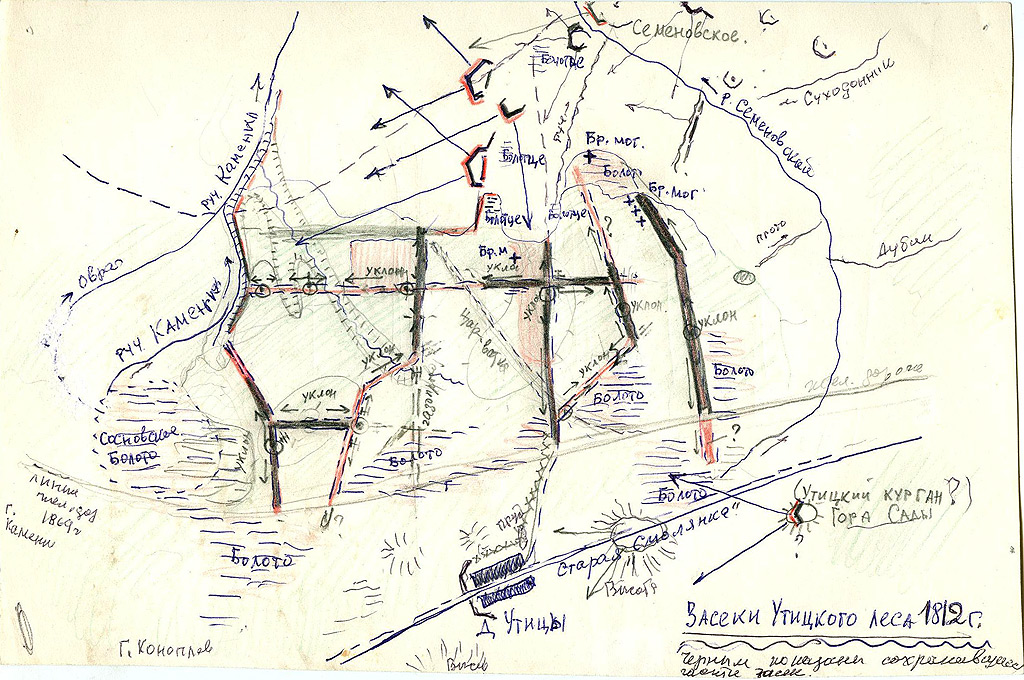 СЕМЕНОВСКОЕ.
Болотце
р. Семеновский
Суходонник
руч.
Бр. мог.
Болото
Бр. мог.
Болотце
Болотце
Болотце
руч Каменка
Овраг
руч. Каменка
Бр. м
уклон
уклон
?
уклон
уклон
уклон
уклон
уклон
Болото
Болото
Сосновское
Болото
Болото
жел. дорога
?
линия
жел. дор
1869 г
г.
Камени
?
Болото
Болото
(Утицкий курган?)
Гора Сады
?
пруд
"Старая Смолянка"
Высота
Д Утицы
Г. Коноплев
Засеки Утицкого леса 1812 г.
Черным показаны сохранившиеся
части засек.